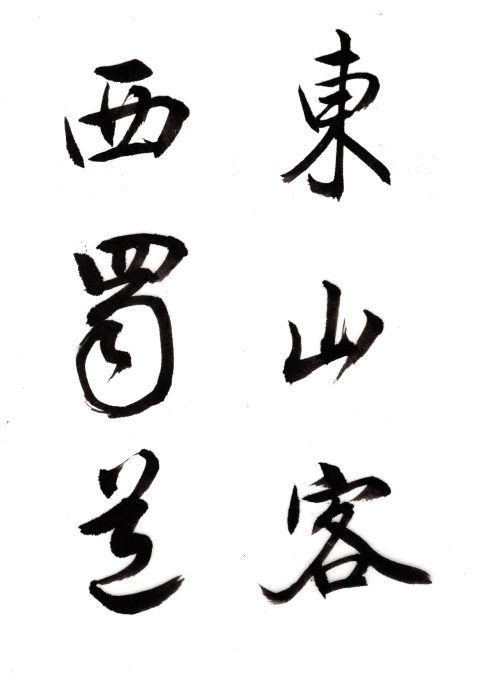 東山客
西蜀道